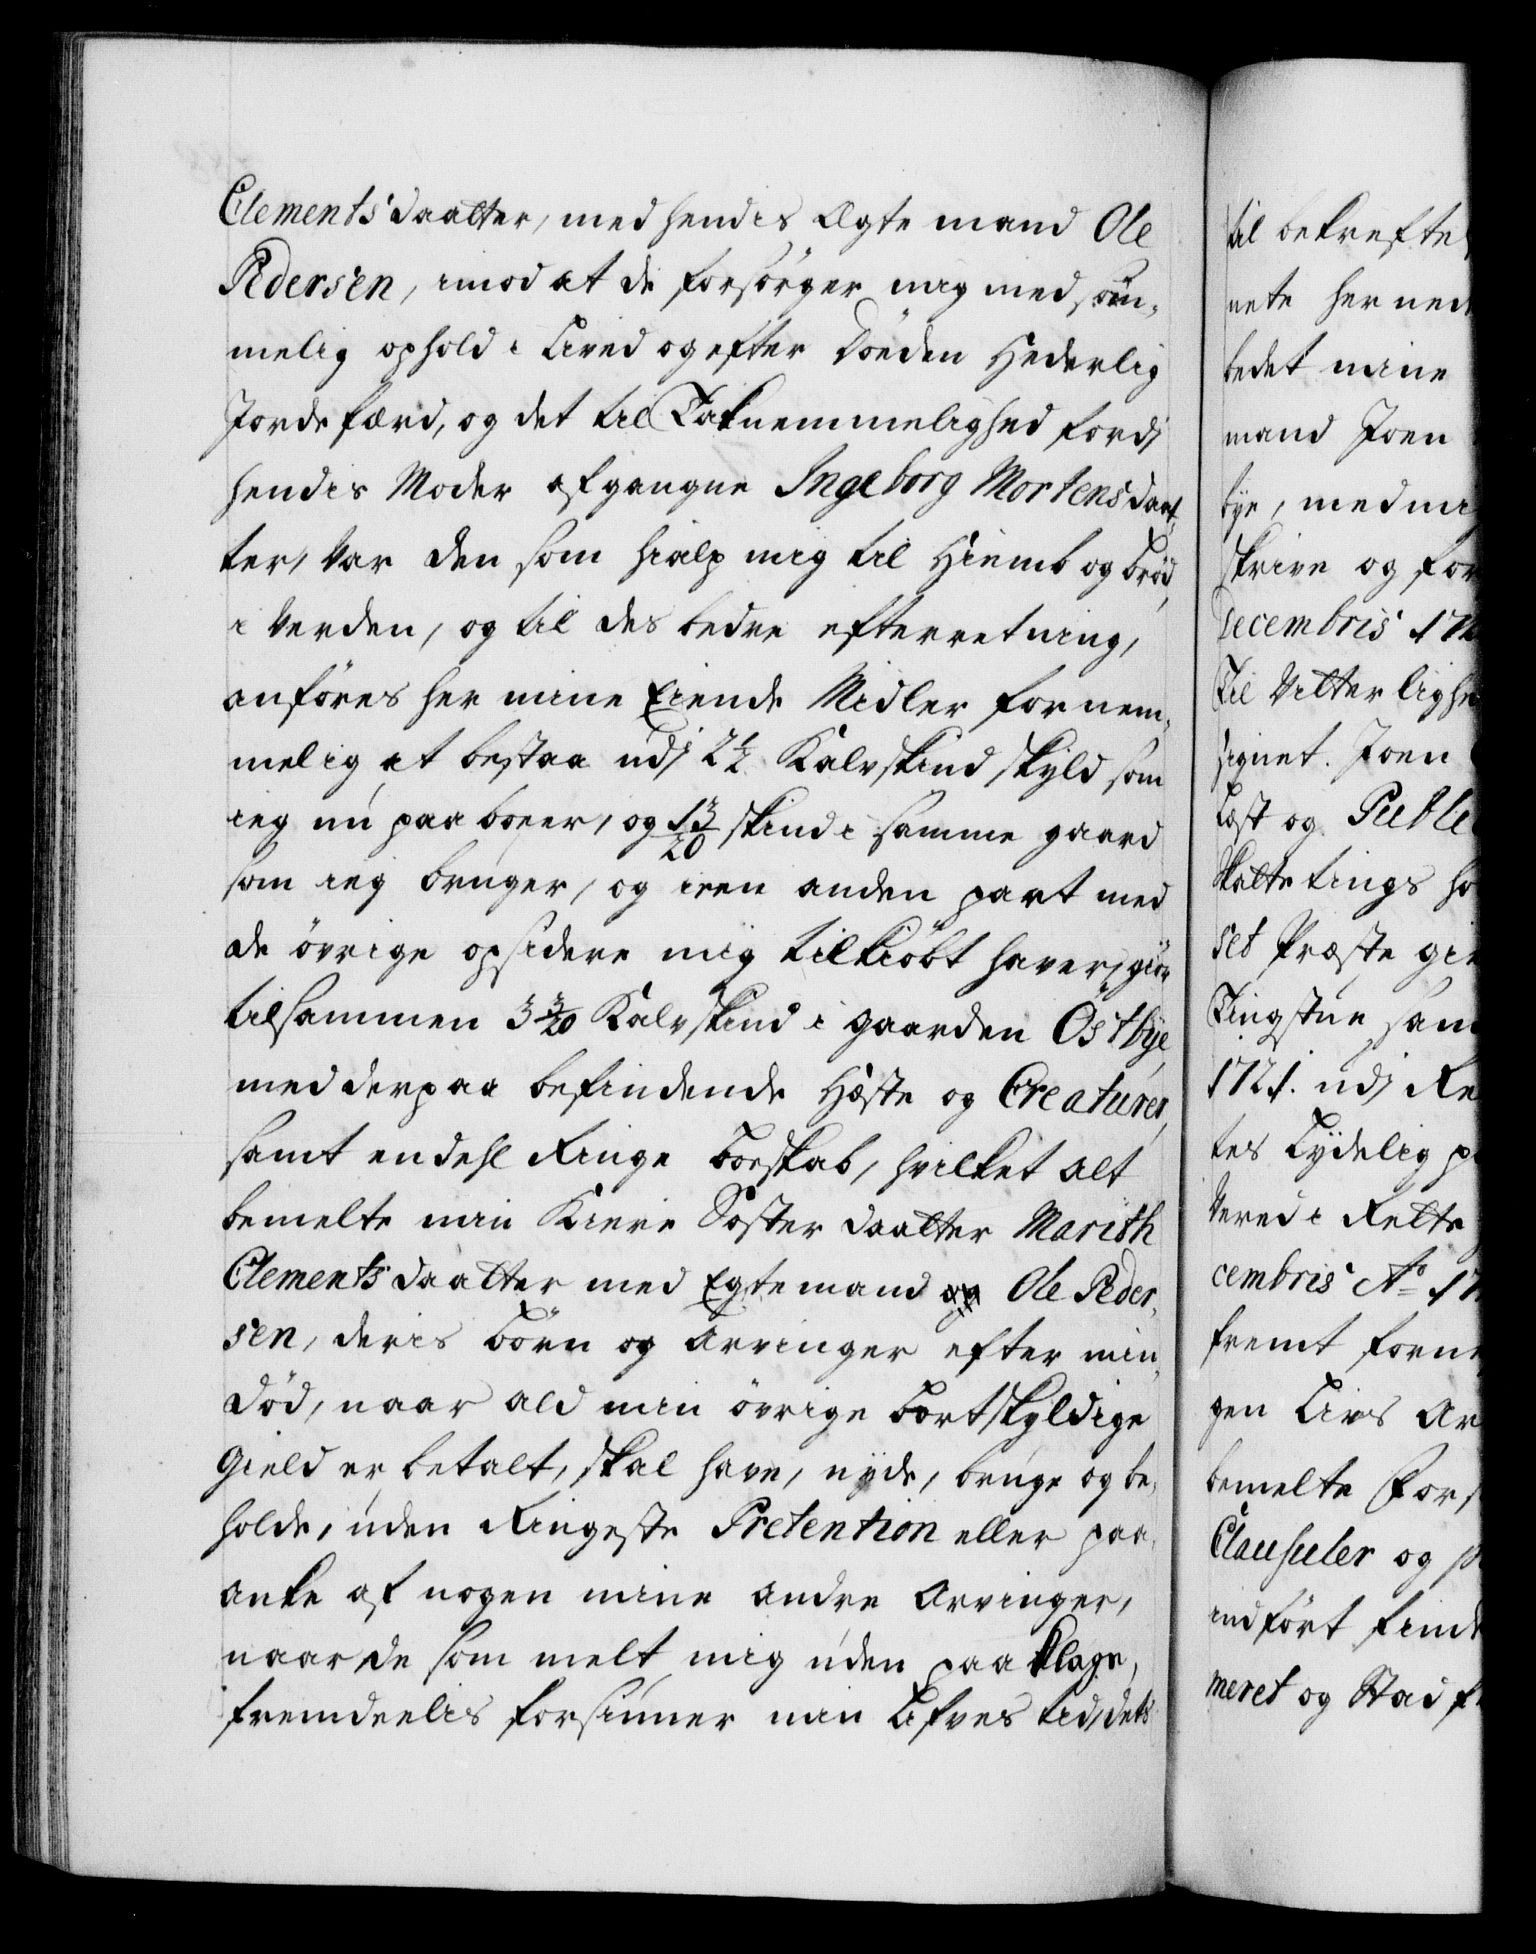 Clements daatter, med hendis Ægte mand Ole
Pedersen, imod at de forsörger mig med söm-
melig ophold i Lived og efter Döeden Hederlig
Jordefærd, og det til Taknemmelighed fordj
hendis Moder afgangne Ingeborg Mortens daat-
ter, var den som hialp mig til Hiemb og bröd
i Verden, og til des bedre efterretning,
anföres her mine Eiende Midler fornem-
melig at bestaa udj 2½ Kalvskind skyld som
ieg nu paa boeer, og 13/20 skind i samme gaard
som ieg bruger, og ieen anden part med
de övrige opsidere mig tilkiöbt haver, giör
tilsammen 3 3/20 Kalvskind i gaarden Östbÿe
med derpaa befindende Hæste og Creaturer,
samt en dehl Ringe Boeskab, hvilket alt
bemelte min Kiere Söster daatter Marith
Clements daatter med Egtemand og Ole Peder-
sen, deris Börn og Arvinger efter min
död, naar ald min övrige bortskyldige
Gield er betalt, skal have, nyde, bruge og be-
holde, uden Ringeste Pretention eller paa-
anke af nogen mine andre Arvinger,
naar de som melt mig uden paaklage,
fremdeelis forsiuner min Lifves tid, dets
til bekrefte
nete her ned
bedet mine
mand Joen
bye, med mi
skrive og for
Decembris 172
Til Vitterlighe
signet. Joen
Læst og Publi
Skatte tings ho
set Præste gie
Tingstue sam
1721. udj Re
tes Lydelig p
Vered i Rette
cembris Ao 17
fremt forne
gen Livs Ar
bemelte For
Clausuler og p
indfört finde
meret og Stadf